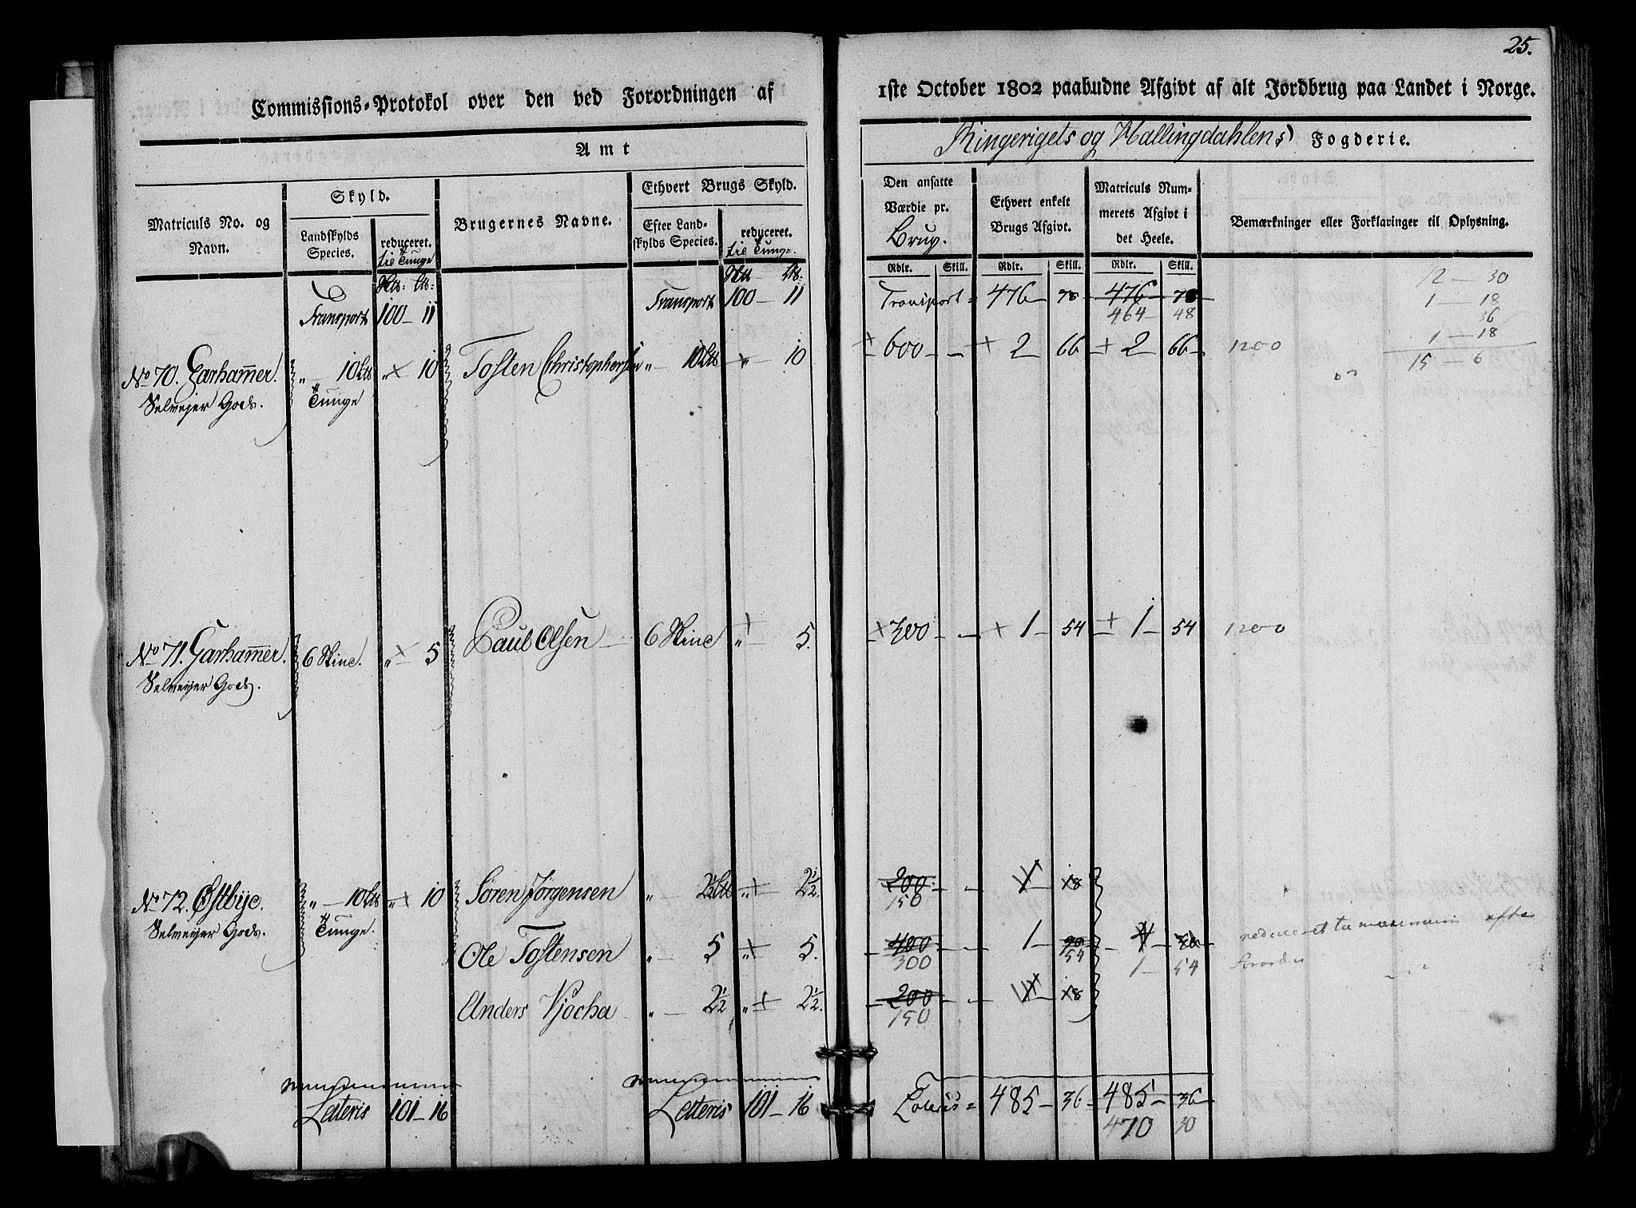 Commissions-Protokol over den ved Forordningen af
Amt
Matriculs No. og Navn.
Skyld.
Landskylds Species.
reduceret. til Tunge
Brugernes Navne.
Ethvert Brugs Skyld.
Efter Landskylds Species.
reduceret. til Tunge.
Transport 100 — 11 Transport 100 — 11
No 70. Garhammer. " — 10 " × 10 Tosten Christophersen " — 10 " 10
Selveyer Gods. Tunge
No 71. Garhammer. 6 Skind. " 5 Paul Olsen 6 Skind " 5.
Selveyer Gods.
No 72. Østbye. " — 10 " 10 Søren Jørgensen " — 2½ " 2½
Selveyer Gods. Tunge.
Ole Tostensen " — 5 " 5.
Anders " — 2½ " 2½.
Lateris 101 — 16 Lateris 101 — 16
25.
1ste October 1802 paabudne Afgivt af alt Jordbrug paa Landet i Norge.
Ringerigets og Hallingdahlens Fogderie.
Den ansatte Værdie pr. Brug.
Ethvert enkelt Brugs Afgivt.
Matriculs Nummerets Afgivt i det Heele.
Bemærkninger eller Forklaringer til Oplysning.
Rdlr. Skill. Rdlr. Skill. Rdlr. Skill.
Transport 476 — 78 476 — 78
464 — 48
12 — 30
1 — 18
36
1 — 18
15 — 6
600 — — 2 66 2 66 1200
300 — — 1 — 54 1 — 54 1200
200 — — 1 — 18
150
400 — — 1 — 90 — 30
300 54 1 — 54
200 — — 1 — 18
150
Lateris 485 — 36 485 — 36
470 30